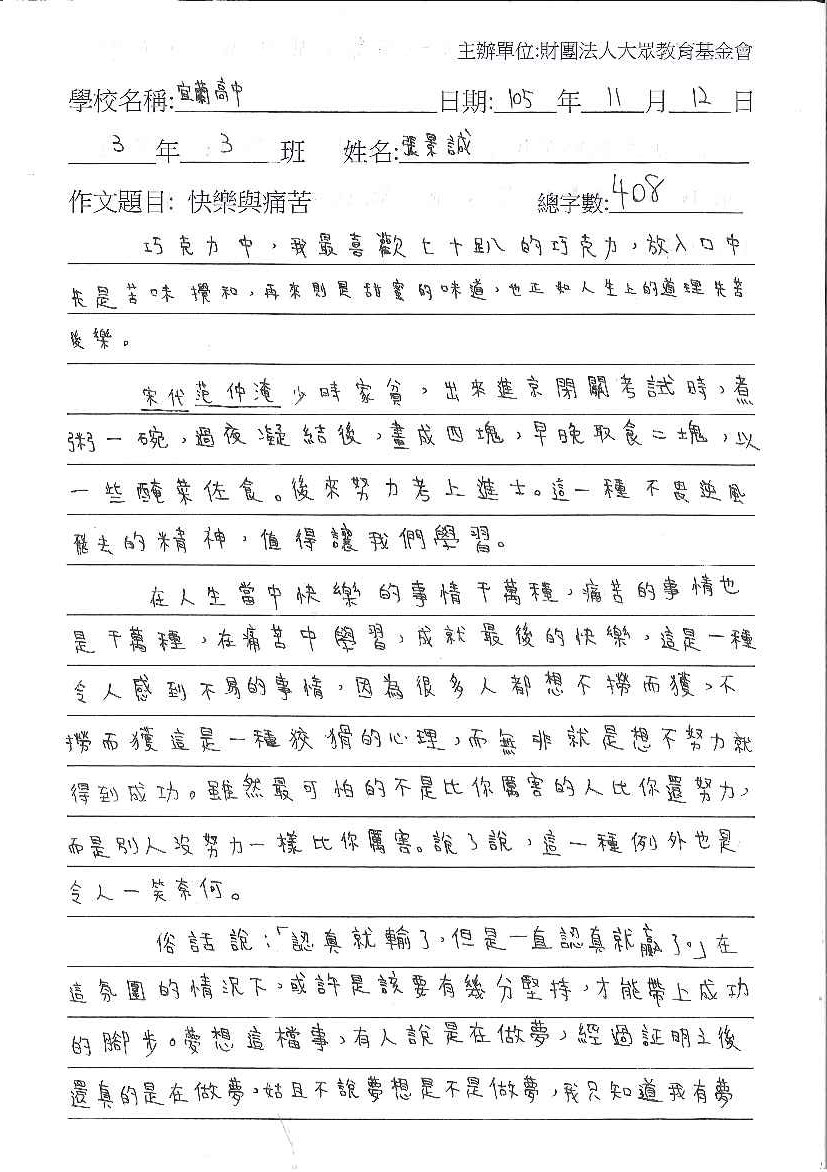 主辦單位:財團法人大眾教育基金會
學校名稱:宜蘭高中 日期:105年11月12日
3年3班 姓名:張景誠
作文題目: 快樂與痛苦 總字數:408
巧克力中，我最喜歡七十趴的巧克力，放入口中
先是苦味攪和，再來則是甜蜜的味道，也正如人生上的道理先苦
後樂。
宋代范仲淹少時家貧，出來進京閉關考試時，煮
粥一碗，過夜凝結後，畫成四塊，早晚取食二塊，以
一些醃菜佐食。後來努力考上進士。這一種不畏逆風
飛去的精神，值得讓我們學習。
在人生當中快樂的事情千萬種，痛苦的事情也
是千萬種，在痛苦中學習，成就最後的快樂，這是一種
令人感到不易的事情，因為很多人都想不撈而獲，不
撈而獲這是一種狡猾的心理，而無非就是想不努力就
得到成功。雖然最可怕的不是比你厲害的人比你還努力，
而是別人沒努力一樣比你厲害。說了說，這一種例外也是
令人一笑奈何。
俗話說：「認真就輸了，但是一直認真就贏了。」在
這氛圍的情況下，或許是該要有幾分堅持，才能帶上成功
的腳步。夢想這檔事，有人說是在做夢，經過証明之後
還真的是在做夢，姑且不說夢想是不是做夢，我只知道我有夢